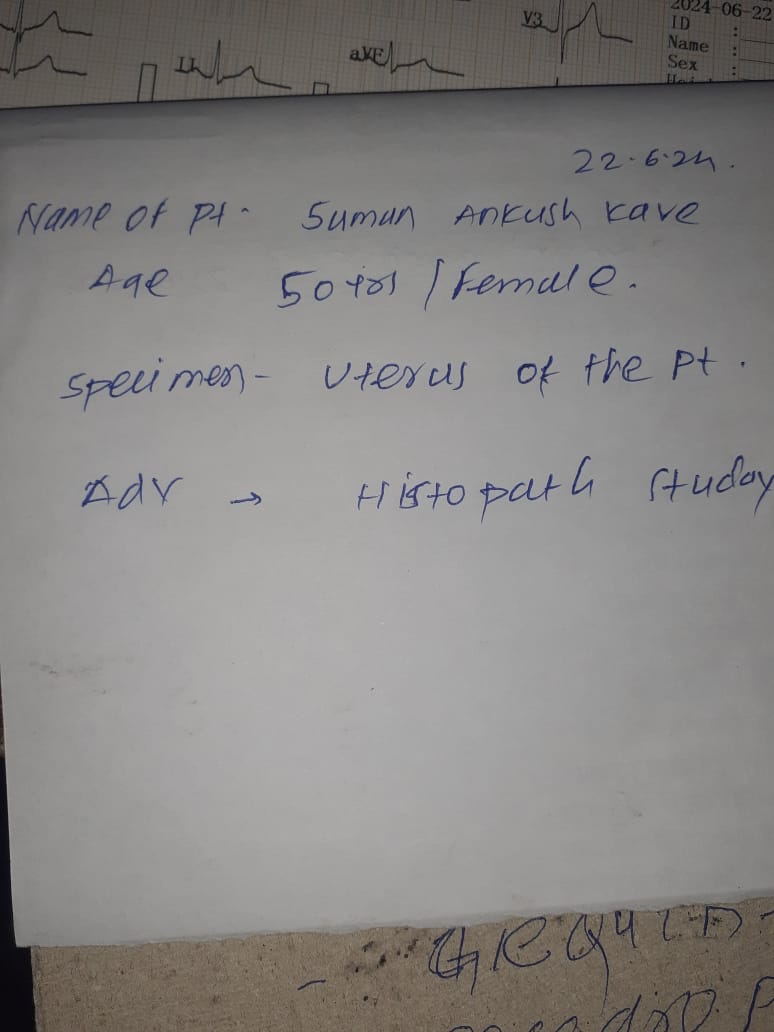 V3
2024-06-22
ID :
Name :
Sex :
aVF
II
22.6.24.
Name of Pt. Suman Ankush Kave
Age 50 yrs / Female.
Specimen - Uterus of the Pt.
Adv → Histopath Studay